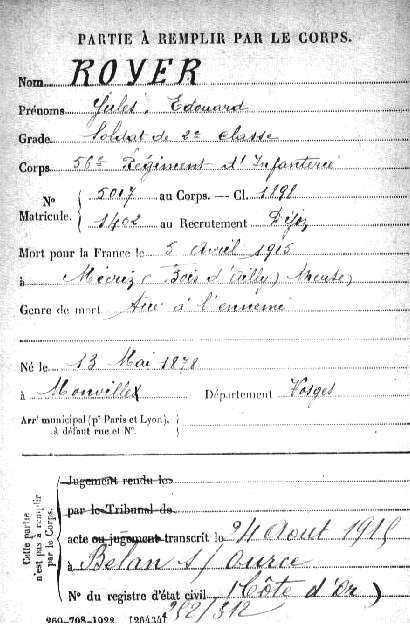 PARTIE À REMPLIR PAR LE CORPS.
Nom ROYER
Prénoms Jules, Edouard
Grade Soldat de 2e classe
Corps 56e Régiment d'Infanterie
N° Matricule. { 5017 au Corps. — Cl. 1898
1402 au Recrutement Dijon
Mort pour la France le 5 Avril 1915
à (Bois d'Ailly) Meuse
Genre de mort Tué à l'ennemi
Né le 13 Mai 1878
à Département Vosges
Arrt municipal (pr Paris et Lyon), à défaut rue et N°.
Cette partie n'est pas à remplir par le Corps.
Jugement rendu le
par le Tribunal de
acte ou jugement transcrit le 24 Aout 1915
à Belan s/ Ource
(Côte d'Or)
N° du registre d'état civil 212/312
260-708-1922 [26434]